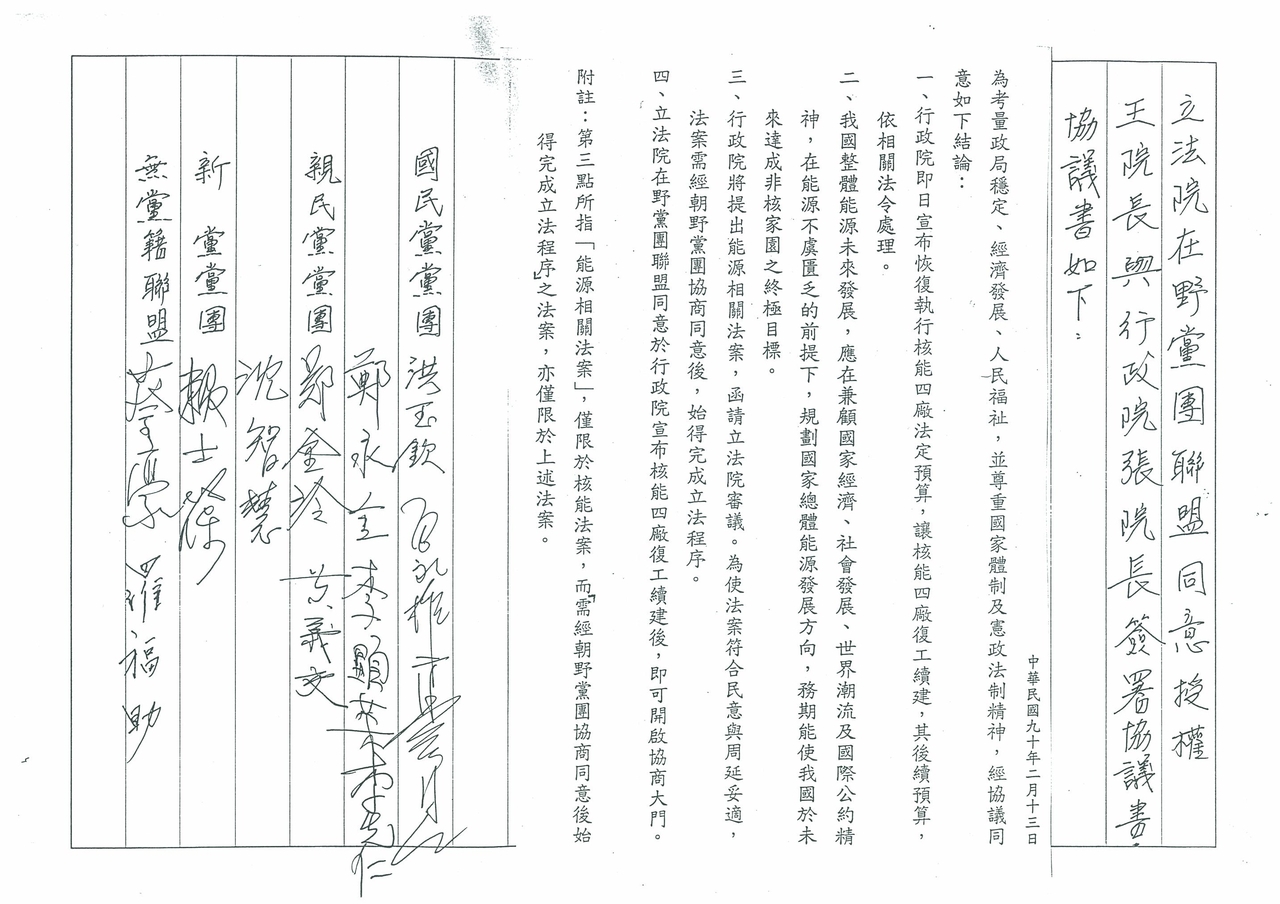 立法院在野黨團聯盟同意授權
王院長與行政院張院長簽署協議書,
協議書如下:
中華民國九十年二月十三日
為考量政局穩定、經濟發展、人民福祉,並尊重國家體制及憲政法制精神,經協議同
意如下結論:
一、行政院即日宣布恢復執行核能四廠法定預算,讓核能四廠復工續建,其後續預算,
依相關法令處理。
二、我國整體能源未來發展,應在兼顧國家經濟、社會發展、世界潮流及國際公約精
神,在能源不虞匱乏的前提下,規劃國家總體能源發展方向,務期能使我國於未
來達成非核家園之終極目標。
三、行政院將提出能源相關法案,函請立法院審議。為使法案符合民意與周延妥適,
法案需經朝野黨團協商同意後,始得完成立法程序。
四、立法院在野黨團聯盟同意於行政院宣布核能四廠復工續建後,即可開啟協商大門。
附註:第三點所指「能源相關法案」,僅限於核能法案,而「需經朝野黨團協商同意後始
得完成立法程序」之法案,亦僅限於上述法案。
國民黨黨團 洪玉欽
鄭永金 李顯榮 李先仁
親民黨黨團 鄭金玲 黃義交
沈智慧
新黨黨團 賴士葆
無黨籍聯盟 蔡豪 羅福助